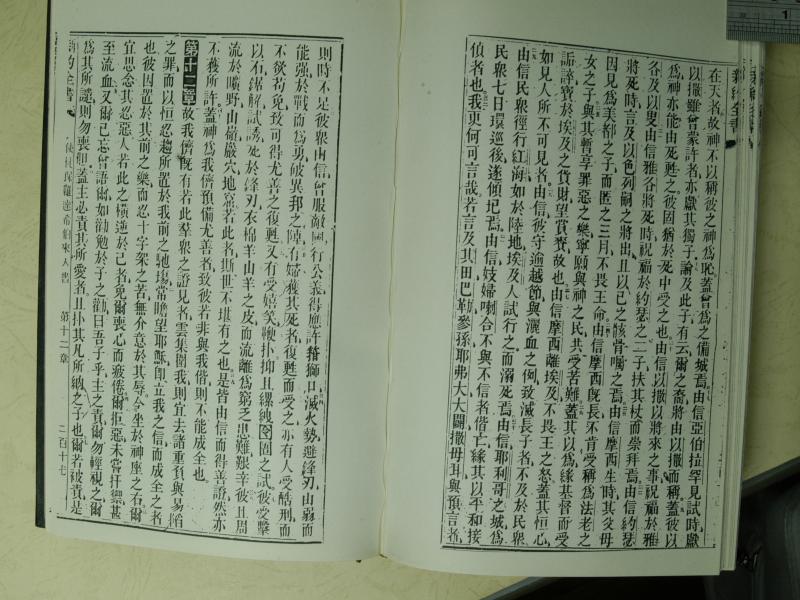 在天者故神不以稱彼之神爲恥蓋曾爲之備城焉由信亞伯拉罕見試時獻
以撒雖曾蒙許者亦獻其獨子論及此子有云爾之裔將由以撒而稱蓋彼以
爲神亦能由死甦之彼因猶於死中受之也由信以撒以將來之事祝福於雅
各及以叟由信雅各將死時祝福於約瑟之二子扶其杖而崇拜焉由信約瑟
將死時言及以色列嗣之將出且以己之骸骨囑之焉由信摩西生時其父母
因見爲美都之子而匿之三月不畏王命由信摩西旣長不肯受稱爲法老之
女之子與其暫享罪惡之樂寧願與神之民共受苦難蓋其以爲緣基督而受
詬誶寶於埃及之貨財望賞賚故也由信摩西離埃及不畏王之怒蓋其恒心
如見人所不可見者由信彼守逾越節與灑血之例致滅長子者不及於民衆
由信民衆徑行紅海如於陸地埃及人試行之而溺死焉由信耶利哥之城爲
民衆七日環巡後遂傾圮焉由信妓婦喇合不與不信者偕亡緣其以平和接
偵者也我更何可言哉若言及其田巴勒參孫耶弗大大闢撒母耳與預言者
則時不足彼衆由信曾服敵國行公義得應許箝獅口滅火勢避鋒刃由弱而
能強於戰而爲勇破異邦之陣有婦獲其死者復甦而受之亦有人受酷刑而
不欲苟免致可得尤善之復甦又有受嬉笑鞭扑抑且縲絏囹圄之試彼受擊
以石鋸解試誘死於鋒刃衣棉羊山羊之皮而流離爲窮乏患難艱辛彼且周
流於曠野山嶺巖穴地窩若此者斯世不堪有之也是皆由信而得善證然亦
不獲所許蓋神爲我儕預備尤善者致彼若非與我偕則不能成全也
第十二章故我儕旣有若此羣衆之證見者雲集圍我則宜去諸重負與易陷
之罪而以恒忍趨所置於我前之馳塲常瞻望耶穌卽立我之信而成全之者
也彼因置於其前之樂而忍十字架之苦無介意於其辱今坐於神座之右爾
宜思念其忍惡人若此之橫逆於己者免爾喪心而疲倦爾拒惡未嘗抒禦甚
至流血又爾已忘曾語爾如勸勉於子之勸曰吾子乎主之責爾勿輕視之爾
爲其所譴則勿喪胆蓋主必責其所愛者且扑其凡所納之子也爾若被責是
新約全書
使徒保羅達希伯來人書
第十二章
二百十七